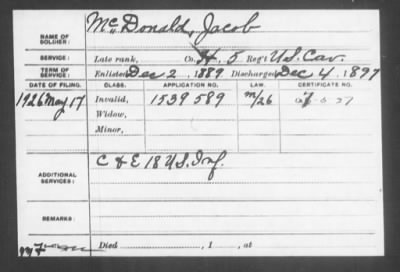 NAME OF SOLDIER: McDonald, Jacob
SERVICE: Late rank, Co. H, 5 Reg't U.S. Cav.
TERM OF SERVICE: Enlisted Dec 2, 1889 Discharged Dec 4, 1897
DATE OF FILING. CLASS. APPLICATION NO. LAW. CERTIFICATE NO.
1926 May 17 Invalid, 1539589 m/26
Widow,
Minor,
ADDITIONAL SERVICES: C & E 18 U.S. Inf.
REMARKS:
Died , 1 , at